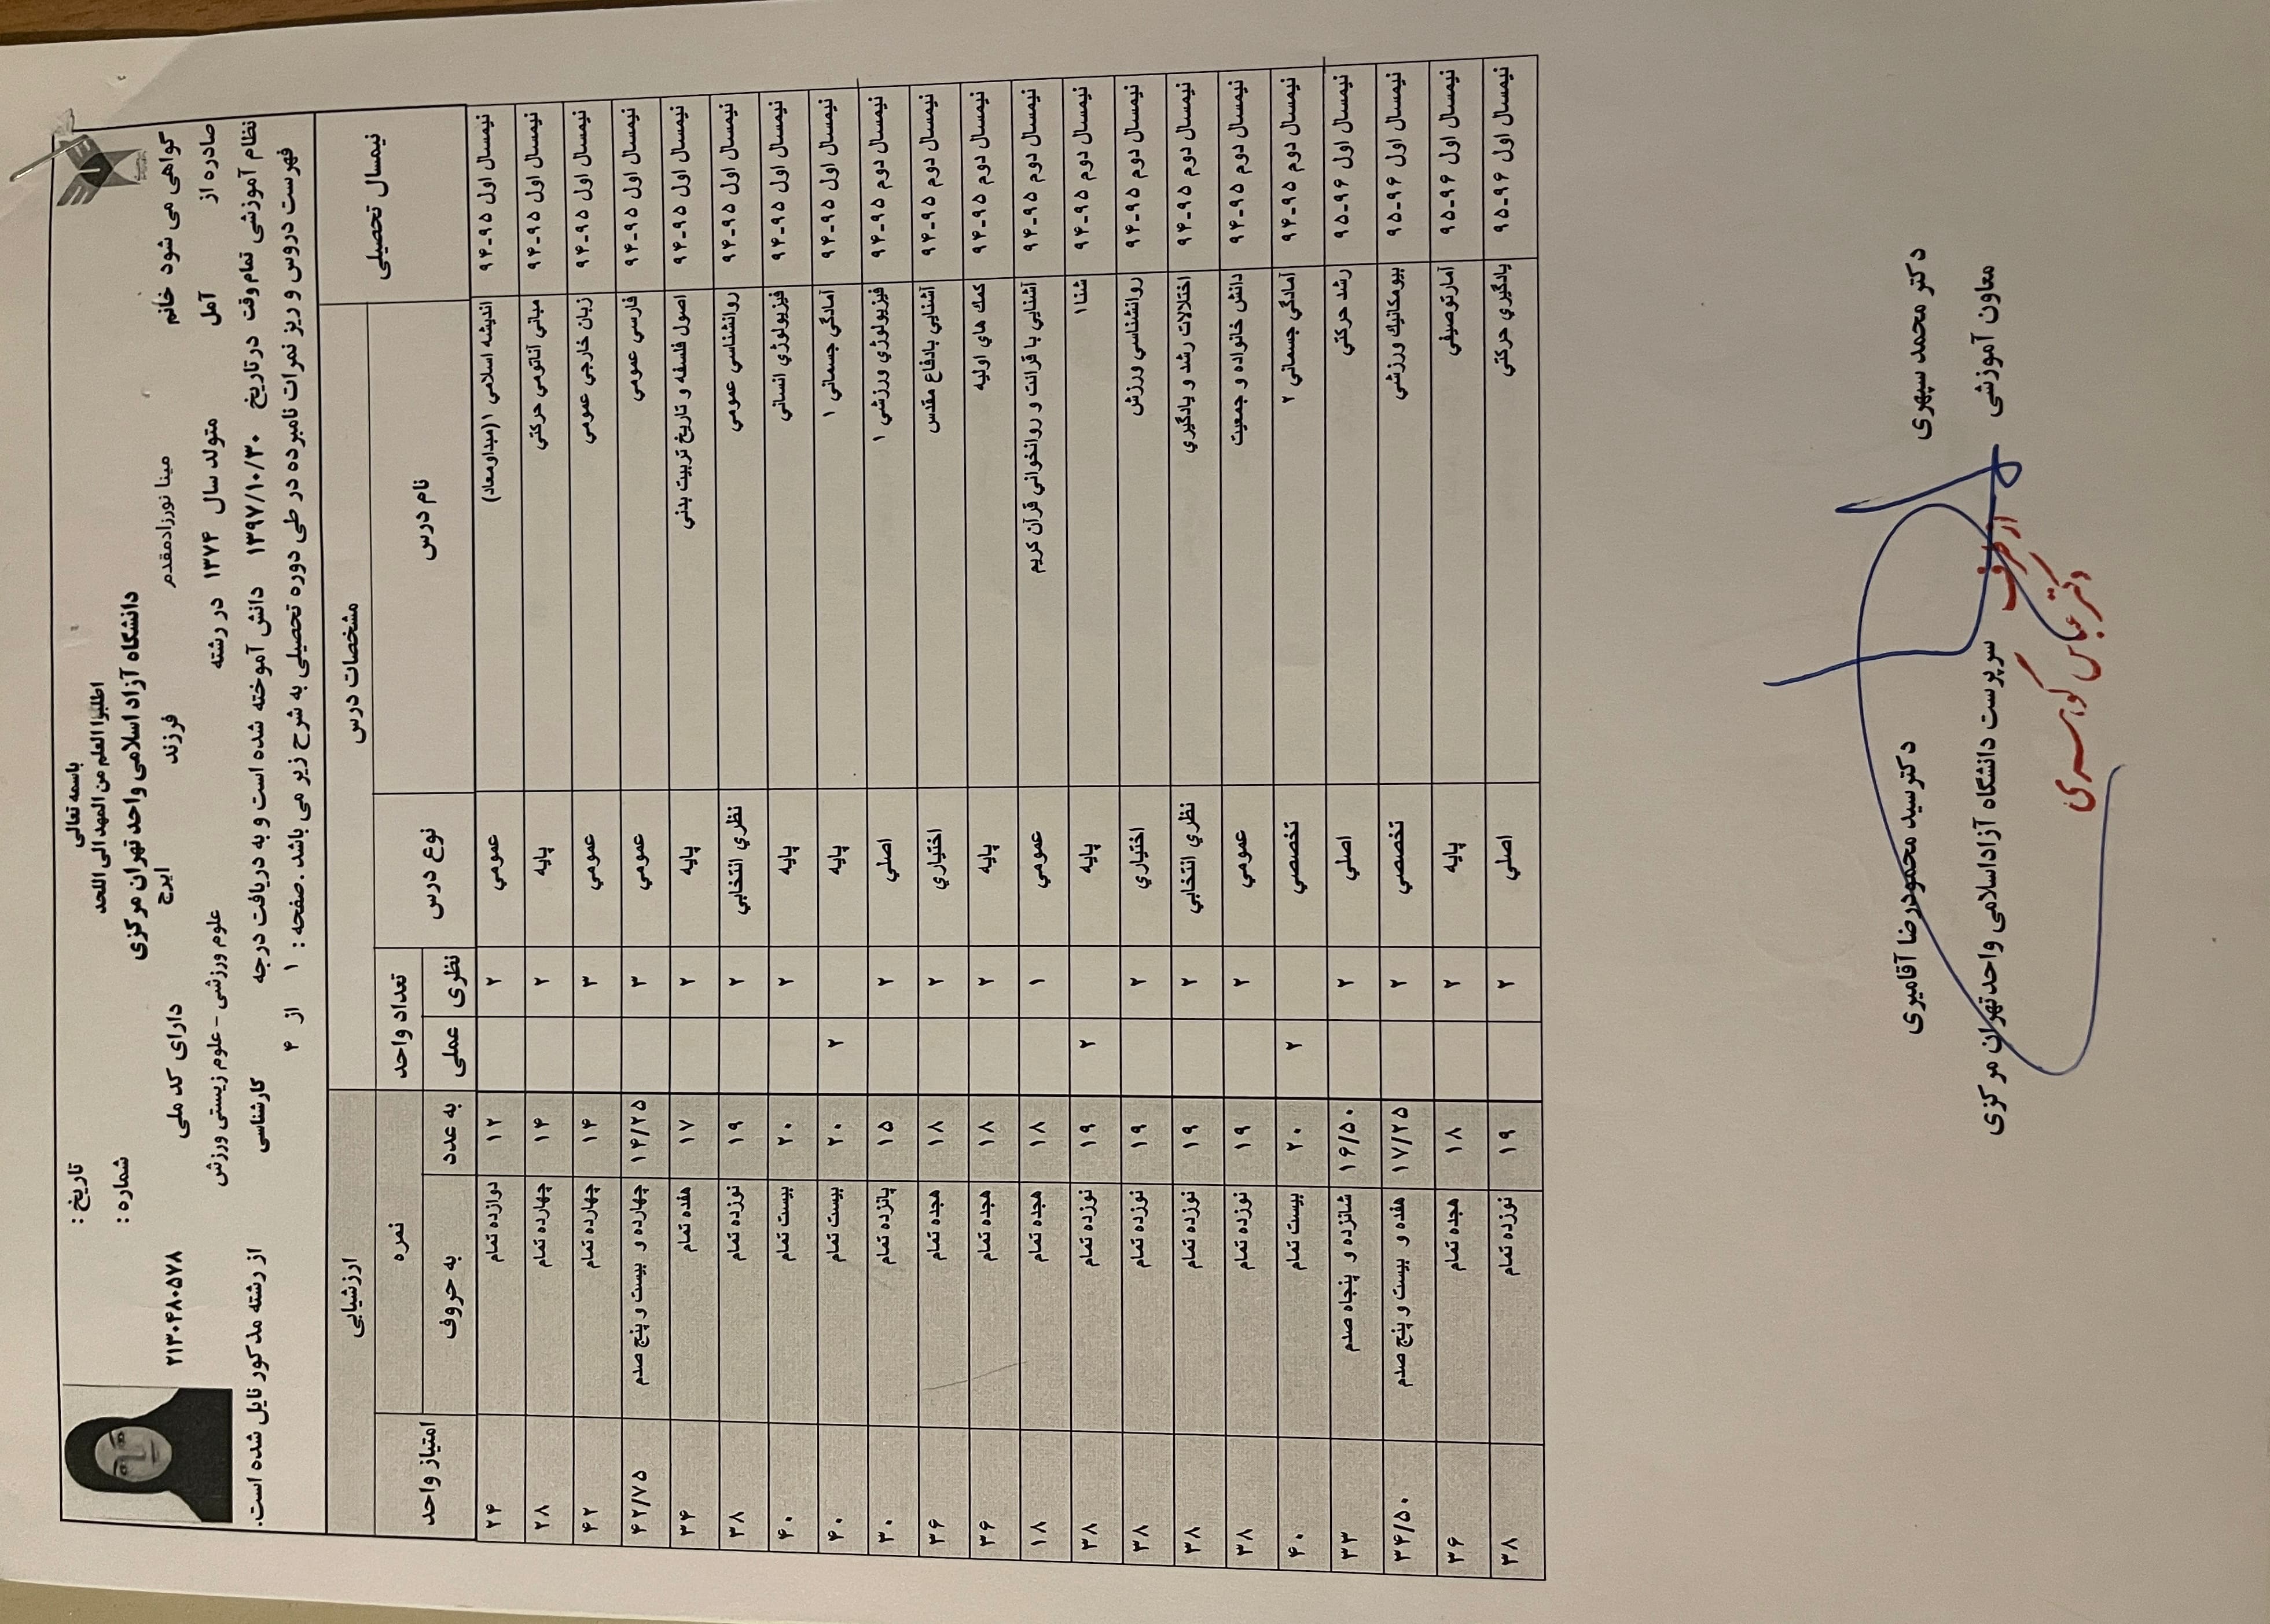 باسمه تعالی
اطلبوا العلم من المهد الی اللحد
دانشگاه آزاد اسلامی واحد تهران مرکزی
تاریخ :
شماره :
گواهی می شود خانم مینا نورزادمقدم فرزند ایرج دارای کد ملی ۲۱۳۰۴۸۰۵۷۸
صادره از آمل متولد سال ۱۳۷۴ در رشته علوم ورزشی - علوم زیستی ورزش
نظام آموزشی تمام وقت در تاریخ ۱۳۹۷/۱۰/۳۰ دانش آموخته شده است و به دریافت درجه کارشناسی از رشته مذکور نایل شده است.
فهرست دروس و ریز نمرات نامبرده در طی دوره تحصیلی به شرح زیر می باشد. صفحه : ۱ از ۴
نیمسال تحصیلی مشخصات درس ارزشیابی
نام درس نوع درس تعداد واحد نمره امتیاز واحد
نظری عملی به عدد به حروف
نیمسال اول ۹۵-۹۴ اندیشه اسلامي ۱(مبداومعاد) عمومي ۲ ۱۲ دوازده تمام ۲۴
نیمسال اول ۹۵-۹۴ مباني آناتومي حرکتي پایه ۲ ۱۴ چهارده تمام ۲۸
نیمسال اول ۹۵-۹۴ زبان خارجي عمومي عمومي ۳ ۱۴ چهارده تمام ۴۲
نیمسال اول ۹۵-۹۴ فارسي عمومي عمومي ۳ ۱۴/۲۵ چهارده و بیست و پنج صدم ۴۲/۷۵
نیمسال اول ۹۵-۹۴ اصول فلسفه و تاریخ تربیت بدني پایه ۲ ۱۷ هفده تمام ۳۴
نیمسال اول ۹۵-۹۴ روانشناسي عمومي نظري انتخابي ۲ ۱۹ نوزده تمام ۳۸
نیمسال اول ۹۵-۹۴ فیزیولوژي انساني پایه ۲ ۲۰ بیست تمام ۴۰
نیمسال اول ۹۵-۹۴ آمادگي جسماني ۱ پایه ۲ ۲۰ بیست تمام ۴۰
نیمسال دوم ۹۵-۹۴ فیزیولوژي ورزشي ۱ اصلي ۲ ۱۵ پانزده تمام ۳۰
نیمسال دوم ۹۵-۹۴ آشنایي بادفاع مقدس اختیاري ۲ ۱۸ هجده تمام ۳۶
نیمسال دوم ۹۵-۹۴ کمك هاي اولیه پایه ۲ ۱۸ هجده تمام ۳۶
نیمسال دوم ۹۵-۹۴ آشنایي با قرائت و روانخواني قرآن کریم عمومي ۱ ۱۸ هجده تمام ۱۸
نیمسال دوم ۹۵-۹۴ شنا۱ پایه ۲ ۱۹ نوزده تمام ۳۸
نیمسال دوم ۹۵-۹۴ روانشناسي ورزش اختیاري ۲ ۱۹ نوزده تمام ۳۸
نیمسال دوم ۹۵-۹۴ اختلالات رشد و یادگیري نظري انتخابي ۲ ۱۹ نوزده تمام ۳۸
نیمسال دوم ۹۵-۹۴ دانش خانواده و جمعیت عمومي ۲ ۱۹ نوزده تمام ۳۸
نیمسال دوم ۹۵-۹۴ آمادگي جسماني ۲ تخصصي ۲ ۲۰ بیست تمام ۴۰
نیمسال اول ۹۶-۹۵ رشد حرکتي اصلي ۲ ۱۶/۵۰ شانزده و پنجاه صدم ۳۳
نیمسال اول ۹۶-۹۵ بیومکانیك ورزشي تخصصي ۲ ۱۷/۲۵ هفده و بیست و پنج صدم ۳۴/۵۰
نیمسال اول ۹۶-۹۵ آمارتوصیفي پایه ۲ ۱۸ هجده تمام ۳۶
نیمسال اول ۹۶-۹۵ یادگیري حرکتي اصلي ۲ ۱۹ نوزده تمام ۳۸
دکتر محمد سپهری دکتر سید محمودرضا آقامیری
معاون آموزشی سرپرست دانشگاه آزاداسلامی واحدتهران مرکزی
از طرف
دکتر عباس کوثری